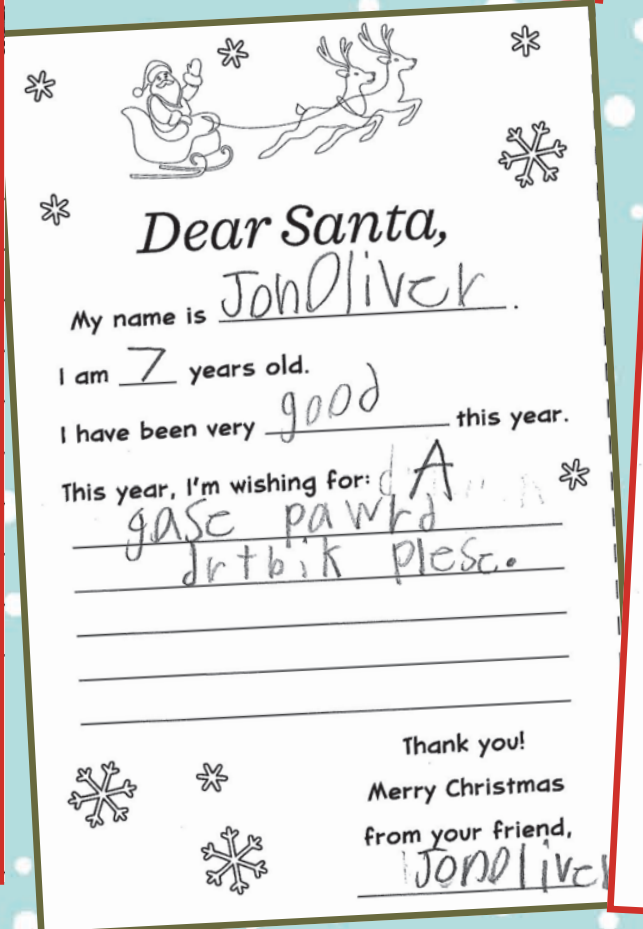 Dear Santa,
My name is JonOliver.
I am 7 years old.
I have been very good this year.
This year, I'm wishing for: A
gase pawrd
drtbik plese.
Thank you!
Merry Christmas
from your friend,
JonOliver